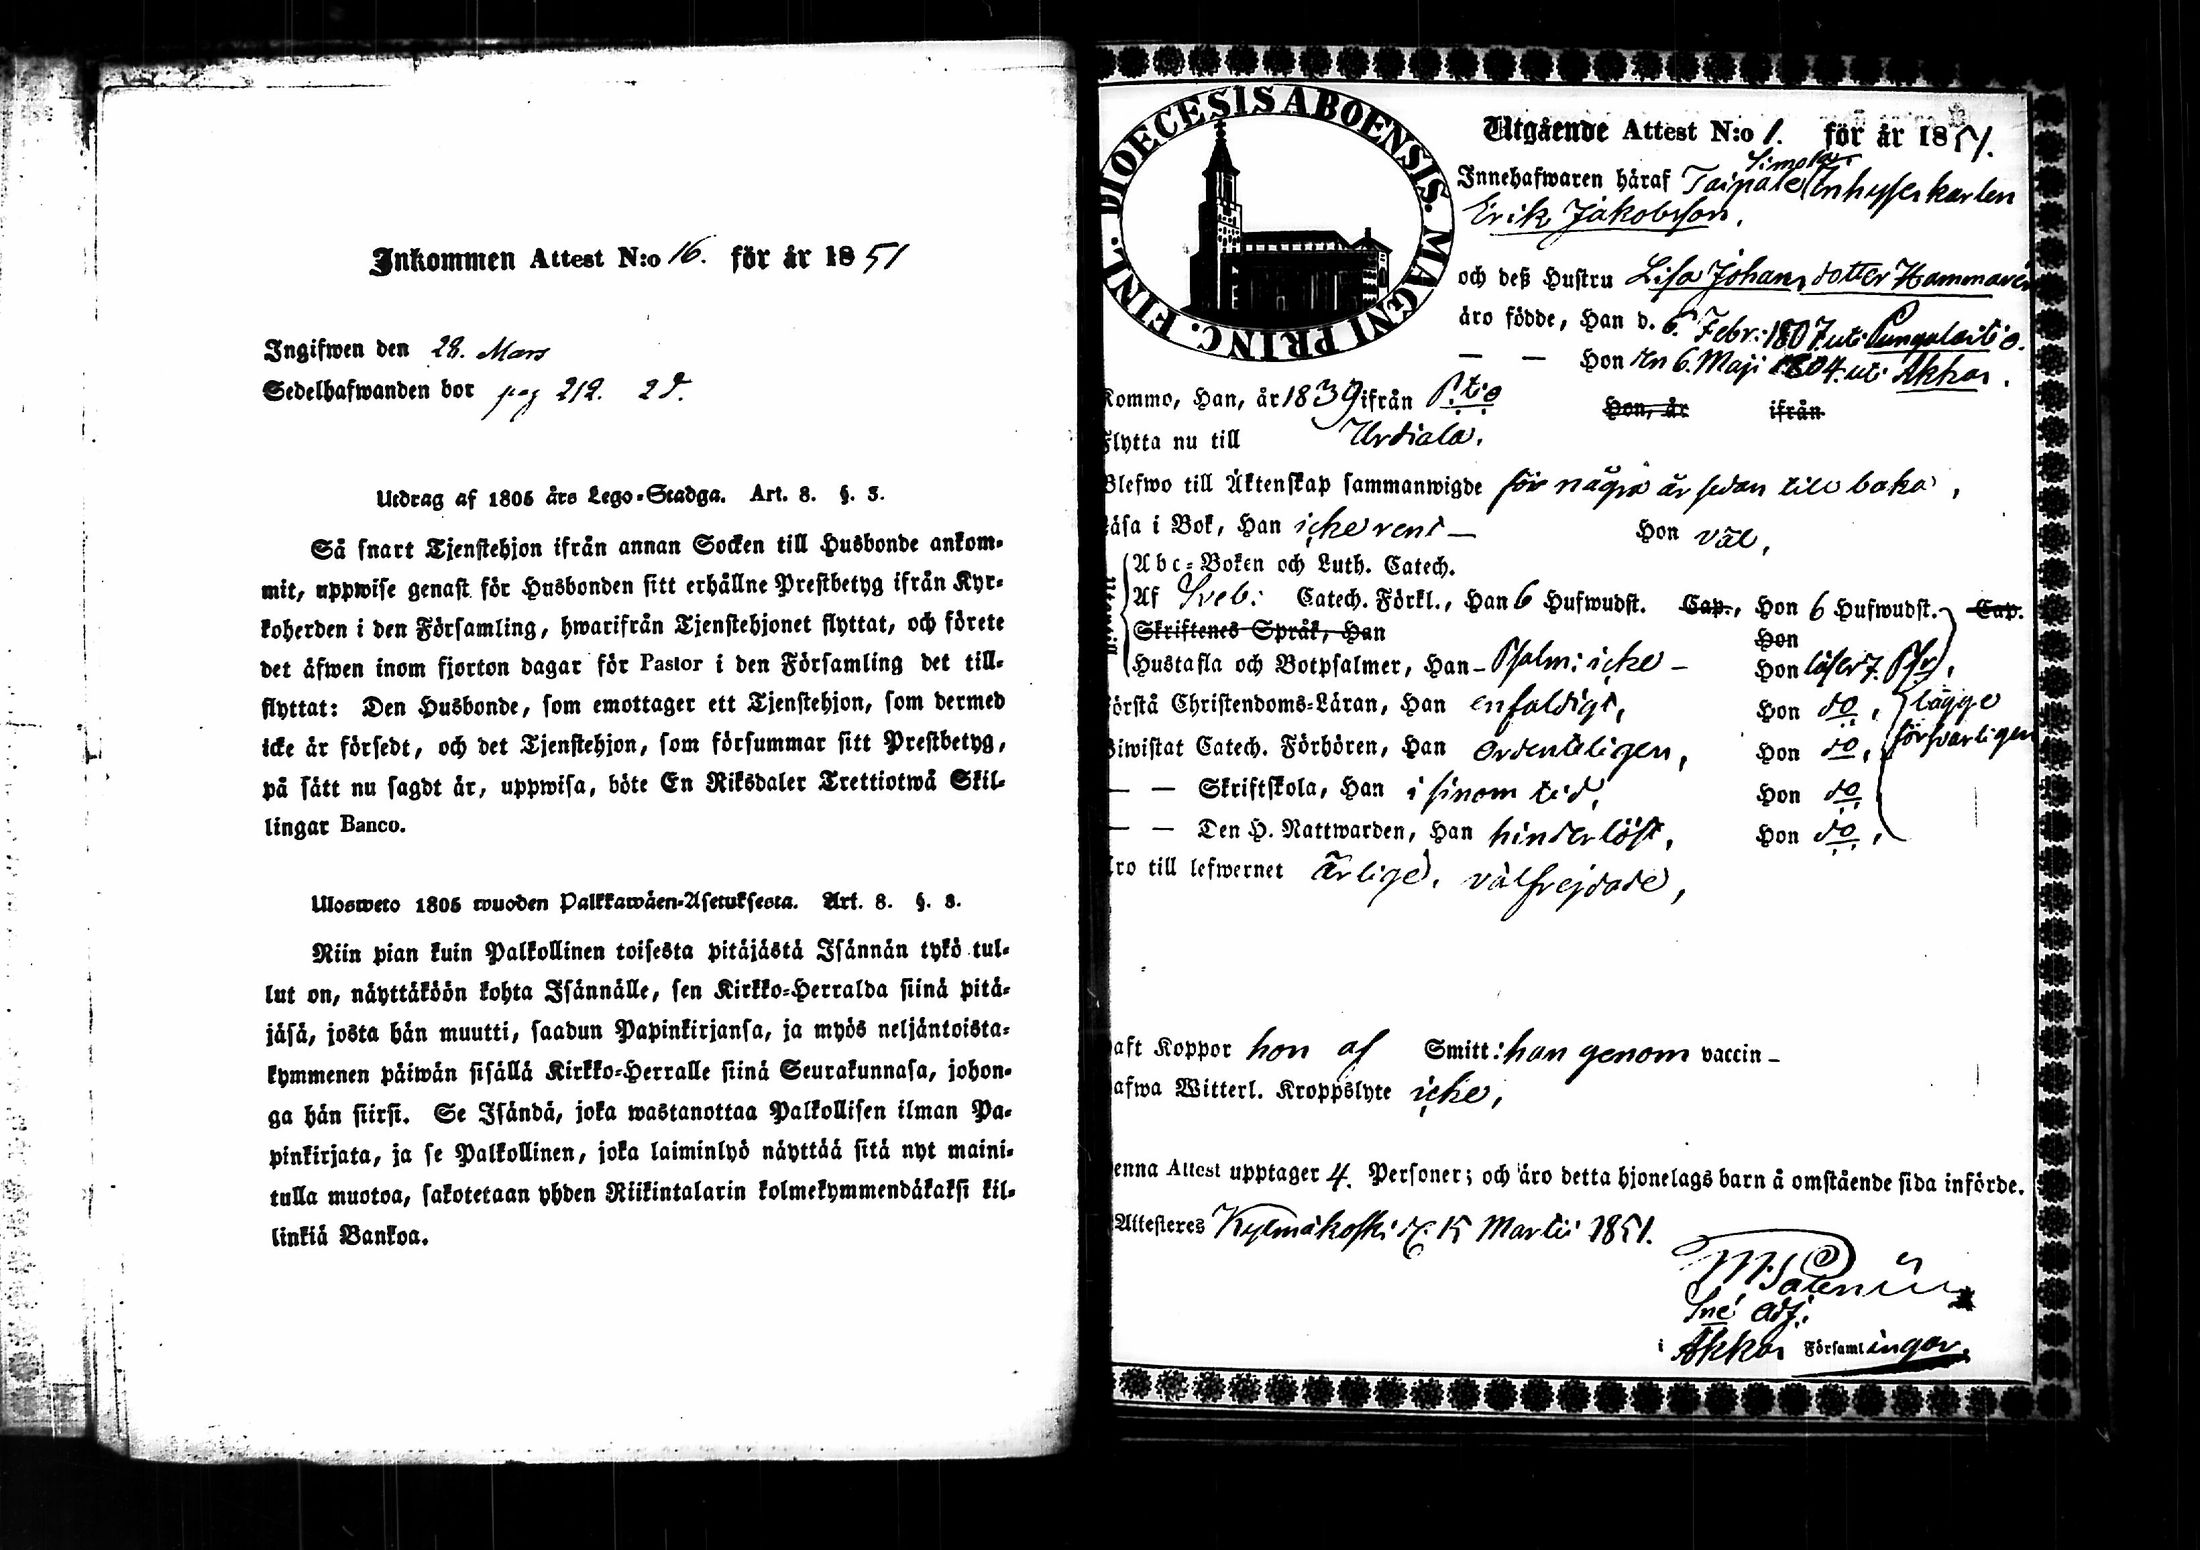 Inkommen Attest N:o 16. för år 1851
Ingifwen den 28. Mars
Sedelhafwanden bor pag 212. 2 d.
Utdrag af 1805 års Lego-Stadga. Art. 8. §. 3.
Så snart Tjenstehjon ifrån annan Socken till Husbonde ankom-
mit, uppwise genast för Husbonden sitt erhållne Prestbetyg ifrån Kyr-
koherden i den Församling, hwarifrån Tjenstehjonet flyttat, och förete
det äfwen inom fjorton dagar för Pastor i den Församling det till-
flyttat: Den Husbonde, som emottager ett Tjenstehjon, som dermed
icke är försedt, och det Tjenstehjon, som försummar sitt Prestbetyg,
på sätt nu sagdt är, uppwisa, böte En Riksdaler Trettiotwå Skil-
lingar Banco.
Ulosweto 1805 wuoden Palkkawäen-Asetuksesta. Art. 8. §. 3.
Niin pian kuin Palkollinen toisesta pitäjästä Isännän tykö tul-
lut on, näyttäköön kohta Isännälle, sen Kirkko-Herralda siinä pitä-
jäsä, josta hän muutti, saadun Papinkirjansa, ja myös neljäntoista-
kymmenen päiwän sisällä Kirkko-Herralle siinä Seurakunnasa, johon-
ga hän siirsi. Se Isändä, joka wastanottaa Palkollisen ilman Pa-
pinkirjata, ja se Palkollinen, joka laiminlyö näyttää sitä nyt maini-
tulla muotoa, sakotetaan yhden Riikintalarin kolmekymmendäkaksi kil-
linkiä Bankoa.
DIOECESIS ABOENSIS. MAGNI PRINC. FINL.
Utgående Attest N:o 1. för år 1851.
Simola
Innehafwaren häraf Taipale Inhysseskarlen
Erik Jakobsson.
och deß Hustru Lisa Johansdotter Hammarén
äro födde, Han d. 6 Febr: 1807. uti Pungalaitio.
— — Hon den 6. Maji 1804. uti Akkas.
Kommo, Han, år 1839 ifrån P:tio Hon, år ifrån
Flytta nu till Urdiala.
Blefwo till Äktenskap sammanwigde för några år sedan till baka,
Läsa i Bok, Han icke rent — Hon väl,
Abc-Boken och Luth. Catech.
Af Sveb: Catech. Förkl., Han 6 Hufwudst. Cap., Hon 6 Hufwudst. Cap.
Skriftenes Språk, Han Hon
Hustafla och Botpsalmer, Han - Psalm: icke - Hon läser 7. Ps),
Förstå Christendoms-Läran, Han enfaldigt, Hon do, bägge
Biwistat Catech. Förhören, Han ordenteligen, Hon do, försvarligen
— — Skriftskola, Han i sinom tid, Hon do
— — Den H. Nattwarden, Han hinderlöst, Hon do,
Äro till lefwernet ärlige, välfrejdade,
Haft Koppor hon af Smitt: han genom vaccin -
Hafwa Witterl. Kroppslyte icke,
Denna Attest upptager 4. Personer; och äro detta hjonelags barn å omstående sida införde.
Attesteres Kylmäkoski d. 15 Martii 1851.
Sné Adj:
i Akkas Församlingar.